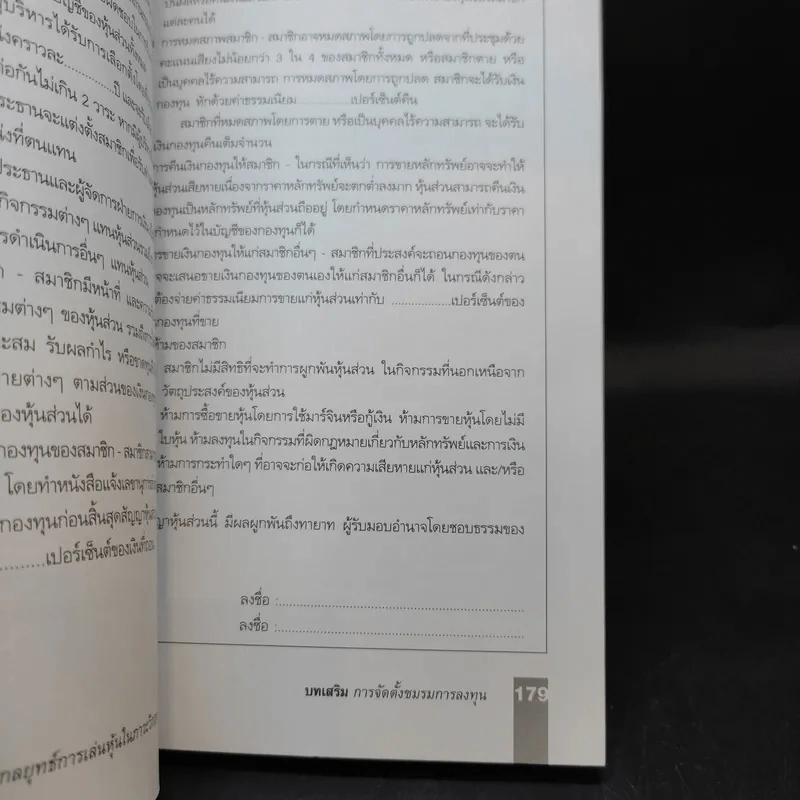 บริหารได้รับการเลือกตั้งโดย
ังคราวละ...............ปี และ
ต่อกันไม่เกิน 2 วาระ หาก
ระธานจะแต่งตั้งสมาชิกเพื่อ
่งที่ตนแทน
ประธานและผู้จัดการฝ่าย
กิจกรรมต่างๆ แทนหุ้นส่วน
รดำเนินการอื่นๆ แทนหุ้นส่วน
ก - สมาชิกมีหน้าที่ และ
รมต่างๆ ของหุ้นส่วน รวมถึง
ะสม รับผลกำไร หรือขาดทุน
ายต่างๆ ตามส่วนของเงิน
องหุ้นส่วนได้
กองทุนของสมาชิก - สมาชิก
โดยทำหนังสือแจ้งเลขานุการ
กองทุนก่อนสิ้นสุดสัญญา
.........เปอร์เซ็นต์ของเงินที่ถอน
กลยุทธ์การเล่นหุ้นในภาวะ
แต่ละคนได้
การหมดสภาพสมาชิก - สมาชิกอาจหมดสภาพโดยการถูกปลดจากที่ประชุมด้วย
คะแนนเสียงไม่น้อยกว่า 3 ใน 4 ของสมาชิกทั้งหมด หรือสมาชิกตาย หรือ
เป็นบุคคลไร้ความสามารถ การหมดสภาพโดยการถูกปลด สมาชิกจะได้รับเงิน
กองทุน หักด้วยค่าธรรมเนียม...............เปอร์เซ็นต์คืน
สมาชิกที่หมดสภาพโดยการตาย หรือเป็นบุคคลไร้ความสามารถ จะได้รับ
เงินกองทุนคืนเต็มจำนวน
การคืนเงินกองทุนให้สมาชิก - ในกรณีที่เห็นว่า การขายหลักทรัพย์อาจจะทำให้
หุ้นส่วนเสียหายเนื่องจากราคาหลักทรัพย์จะตกต่ำลงมาก หุ้นส่วนสามารถคืนเงิน
องทุนเป็นหลักทรัพย์ที่หุ้นส่วนถืออยู่ โดยกำหนดราคาหลักทรัพย์เท่ากับราคา
กำหนดไว้ในบัญชีของกองทุนก็ได้
ารขายเงินกองทุนให้แก่สมาชิกอื่นๆ - สมาชิกที่ประสงค์จะถอนกองทุนของตน
าจจะเสนอขายเงินกองทุนของตนเองให้แก่สมาชิกอื่นก็ได้ ในกรณีดังกล่าว
ต้องจ่ายค่าธรรมเนียมการขายแก่หุ้นส่วนเท่ากับ ...............เปอร์เซ็นต์ของ
กองทุนที่ขาย
ห้ามของสมาชิก
สมาชิกไม่มีสิทธิที่จะทำการผูกพันหุ้นส่วน ในกิจกรรมที่นอกเหนือจาก
วัตถุประสงค์ของหุ้นส่วน
ห้ามการซื้อขายหุ้นโดยการใช้มาร์จินหรือกู้เงิน ห้ามการขายหุ้นโดยไม่มี
ใบหุ้น ห้ามลงทุนในกิจกรรมที่ผิดกฎหมายเกี่ยวกับหลักทรัพย์และการเงิน
ห้ามการกระทำใดๆ ที่อาจจะก่อให้เกิดความเสียหายแก่หุ้นส่วน และ/หรือ
สมาชิกอื่นๆ
ญาหุ้นส่วนนี้ มีผลผูกพันถึงทายาท ผู้รับมอบอำนาจโดยชอบธรรมของ
ลงชื่อ :..................................................
ลงชื่อ :..................................................
บทเสริม การจัดตั้งชมรมการลงทุน 179